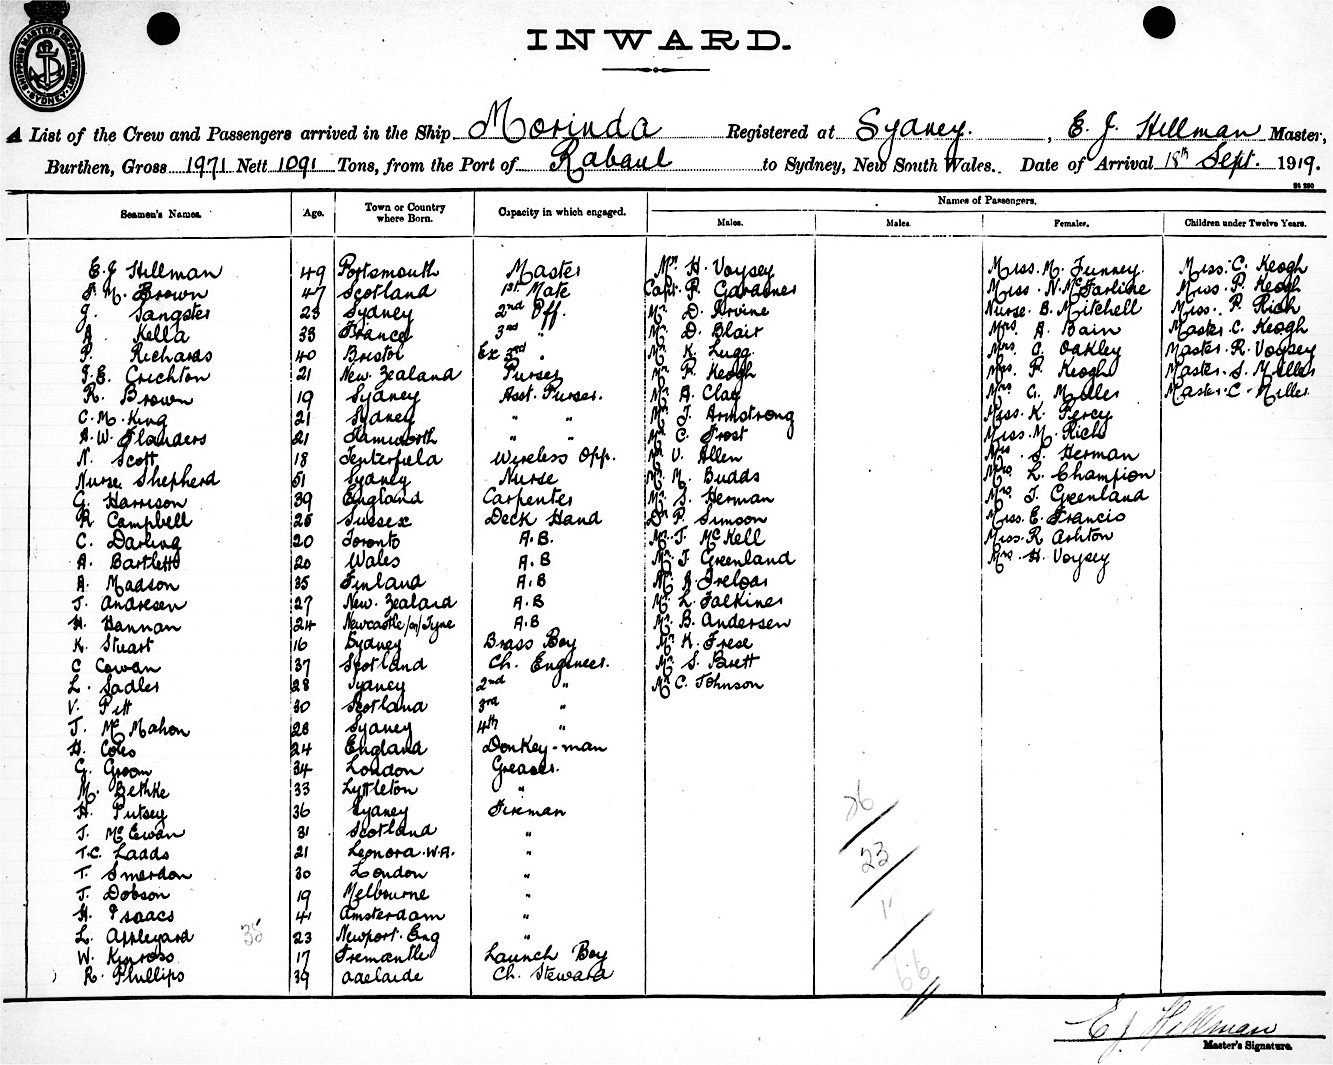 SHIPPING MASTERS DEPARTMENT SYDNEY
INWARD.
A List of the Crew and Passengers arrived in the Ship Morinda Registered at Sydney. , E. J. Hillman Master,
Burthen, Gross 1971 Nett 1091 Tons, from the Port of Rabaul to Sydney, New South Wales. Date of Arrival 18th Sept. 1919.
Seamen's Names. Age. Town or Country where Born. Capacity in which engaged. Names of Passengers.
Males. Males. Females. Children under Twelve Years.
E. J Hillman 49 Portsmouth Master Mr H. Voysey Miss. M. Funney. Miss. C. Keogh
M. Brown 47 Scotland 1st Mate Capt. P. Gardner Miss. N. McFarline Miss. P. Keogh
J. Sangster 28 Sydney 2nd Off. Mr D. Irvine Nurse B. Mitchell Miss. P. Rich
A. Kella 33 France 3rd " Mr D. Blair Mrs. A. Bain Master C. Keogh
P. Richards 40 Bristol Ex 3rd . Mr K. Lugg. Mrs. C. Oakley Master. R. Voysey
J. E. Crichton 21 New. Zealand Purser Mr P. Keogh Mrs. P. Keogh Master. S. Miller
R. Brown 19 Sydney Asst. Purser. Mr A. Clay Mrs G. Moller Master. C. Miller
C. M. King 21 Sydney " " Mr J. Armstrong Miss. K. Percy
A. W. Flanders 21 Tamworth " " Mr C. Frost Miss. M. Rich
N. Scott 18 Tenterfield Wireless Opp. Mr V. Allen Mrs S. Herman
Nurse Shepherd 51 Sydney Nurse Mr M. Budds Mrs. L. Champion
G. Harrison 39 England Carpenter Mr. S. Herman Mrs. J. Greenland
R. Campbell 25 Sussex Deck Hand Dr P. Simson Miss. E. Francis
C. Darling 20 Toronto A.B. Mr. J. McKell Miss. R. Ashton
A. Bartlett 20 Wales A.B Mr. J. Greenland Mrs. H. Voysey
A. Madson 35 Finland A.B Mr. A. Treloar
J. Andresen 27 New. Zealand A.B Mr. L. Falkiner
H. Hannan 24 Newcastle/on/Tyne A.B Mr. B. Andersen
K. Stuart 16 Sydney Brass Boy Mr K. Frese
C Cowan 37 Scotland Ch. Engineer. Mr. S. Brett
L. Sadler 28 Sydney 2nd " Mr C. Johnson
V. Pitt 30 Scotland 3rd "
J. McMahon 28 Sydney 4th "
H. Coles 24 England Donkey-man
G. Groom 34 London Greaser.
M. Bethke 33 Lyttleton "
H. Putsey 36 Sydney Fireman
J. McEwan 31 Scotland "
T.C. Ladds 21 Leonora. W.A. "
T. Smerdon 30 London "
J. Dobson 19 Melbourne "
H. Isaacs 41 Amsterdam "
L. Appleyard 23 Newport. Eng "
W. Kinross 17 Fremantle Launch Boy
R. Phillips 39 Adelaide Ch. Steward
35
26
23
17
66
E J Hillman
Master's Signature.